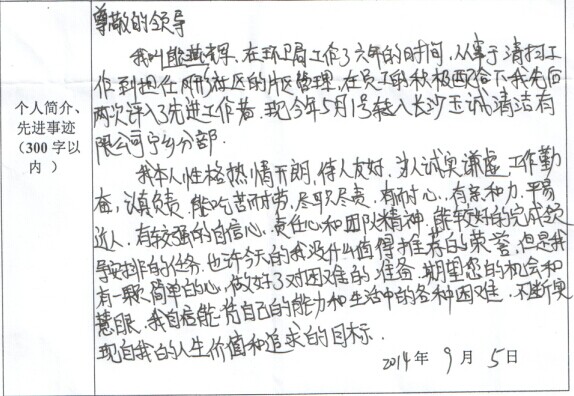 尊敬的领导
我叫熊燕辉,在环卫局工作了六年的时间,从事于清扫工
作到担任社区的片区管理,在员工的积极配合下我先后
两次评入了先进工作者.现今年5月1号转入长沙玉诚清洁有
限公司宁乡分部.
我本人性格热情开朗,待人友好,为人诚实谦虚.工作勤
奋,认真负责,能吃苦耐劳,尽职尽责.有耐心,有亲和力,平易
近人.有较强的自信心,责任心和团队精神,能较好的完成领
导安排的任务.也许今天的我没什么值得推荐的荣誉,但是我
有一颗简单的心,做好了对困难的准备.期望您的机会和
慧眼.我自信能凭自己的能力和生活中的各种困难.不断实
现自我的人生价值和追求的目标.
2014年9月5日
个人简介、
先进事迹
(300字以
内 )